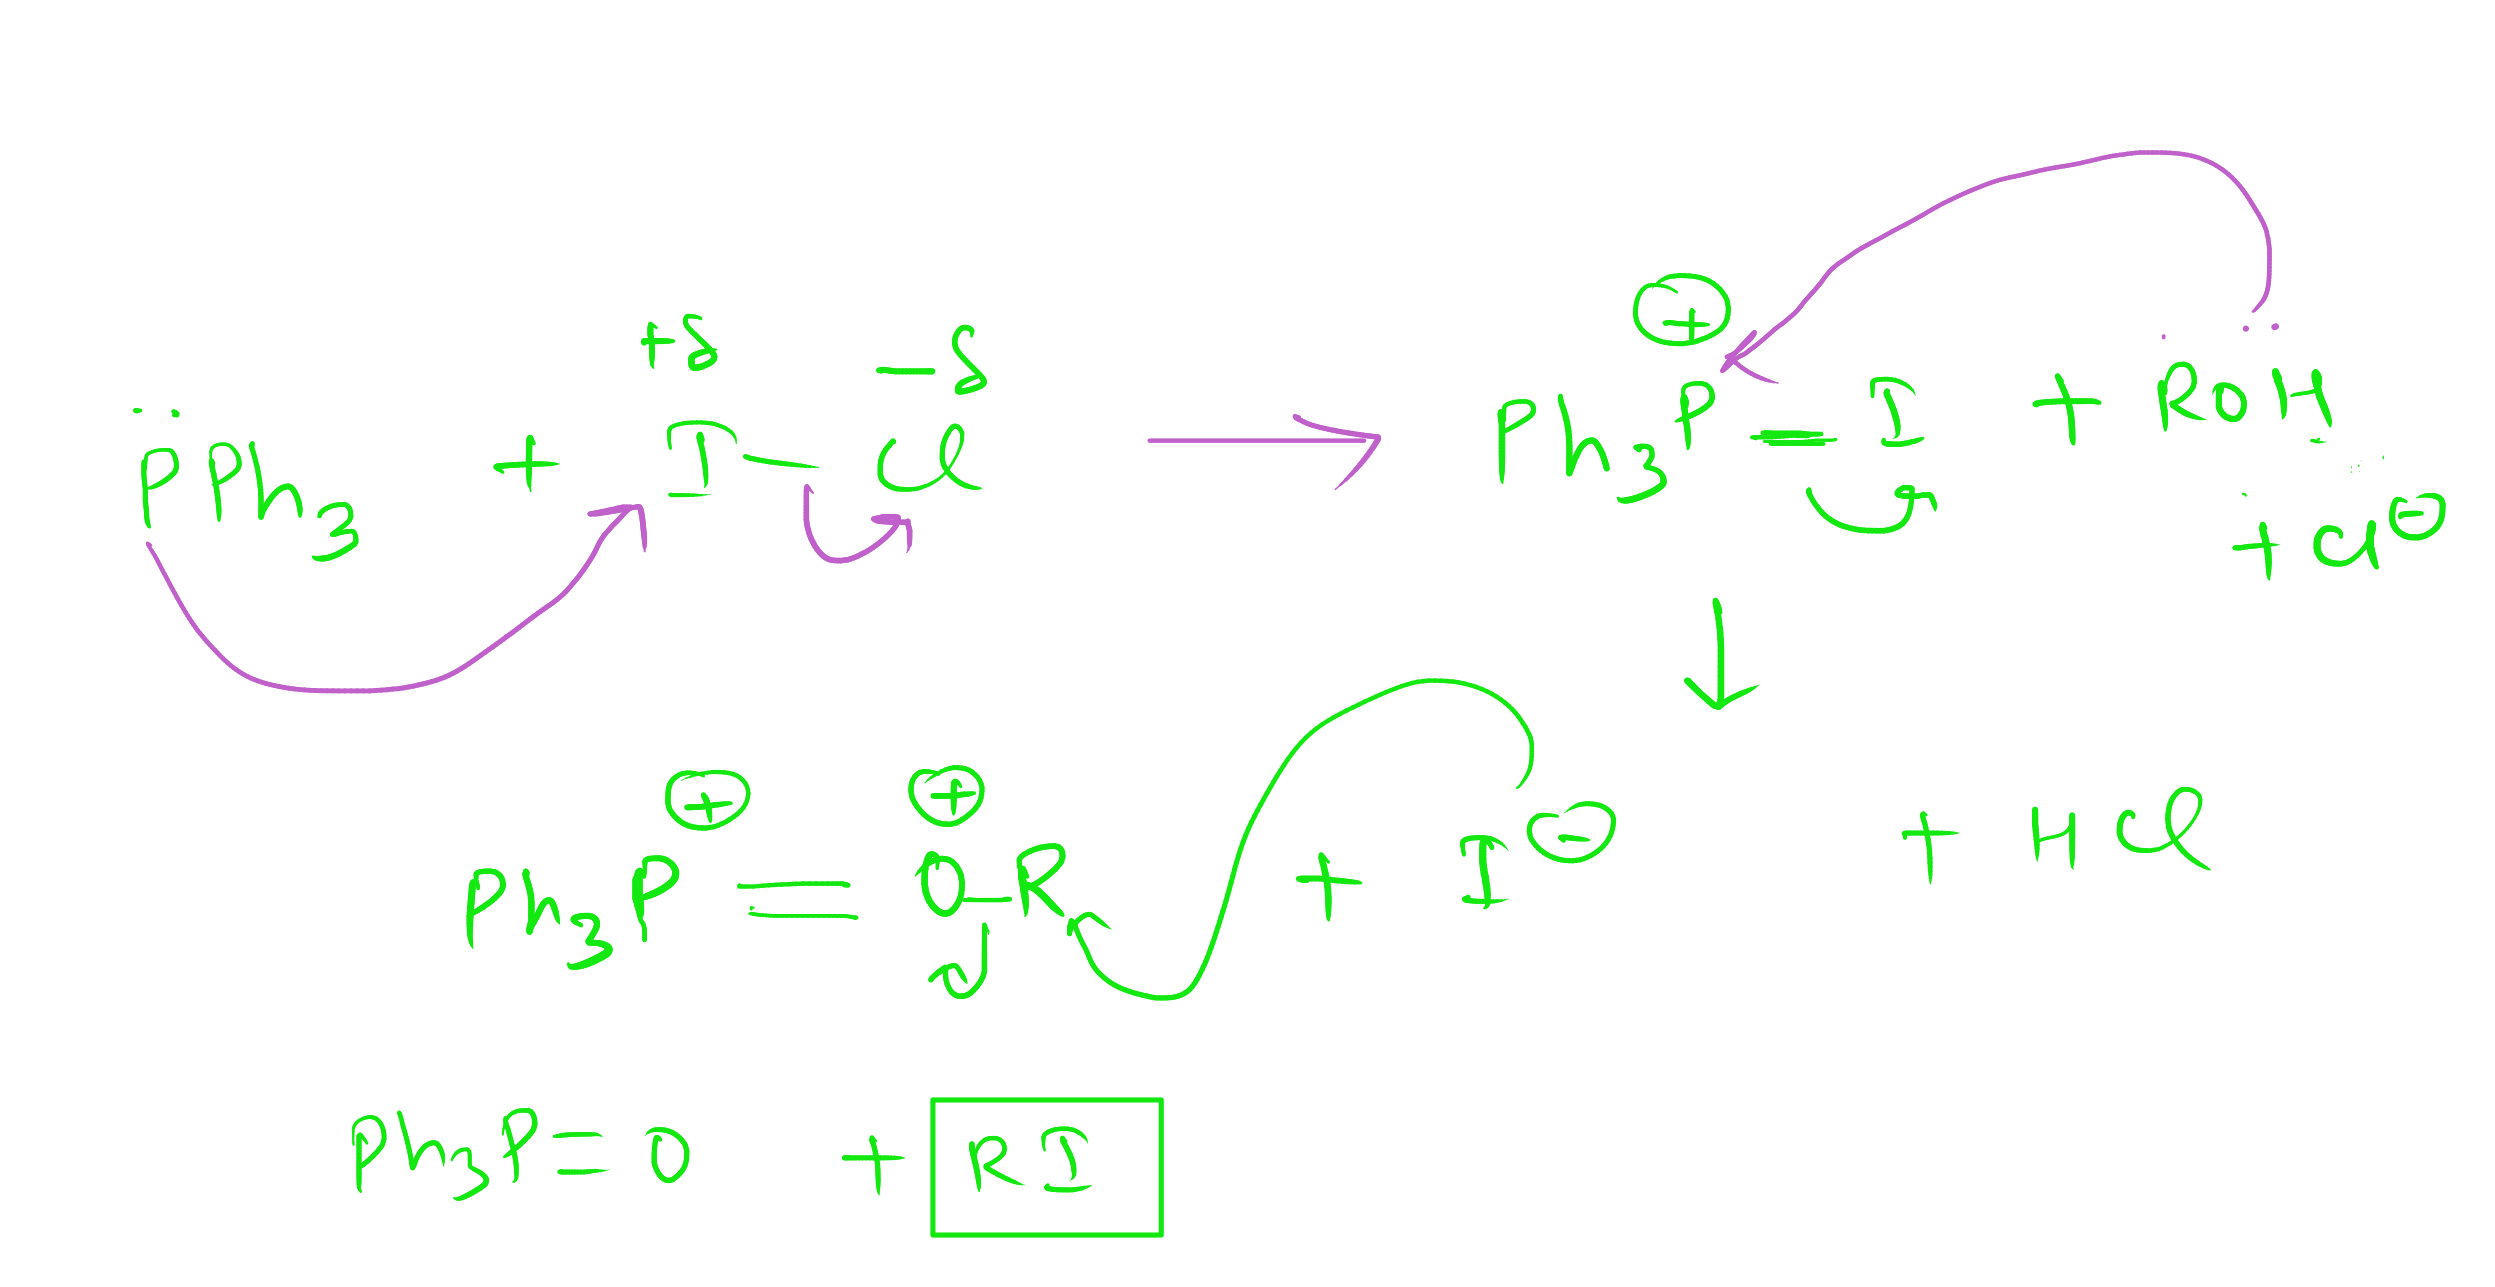 +δ -δ
P̈Ph₃ + I-Cl ⟶ Ph₃P⊕-I + RÖH
+ Cl⊖
Ph₃P⊕=O⊕-R + I⊖ + HCl
Ph₃P=O + RI